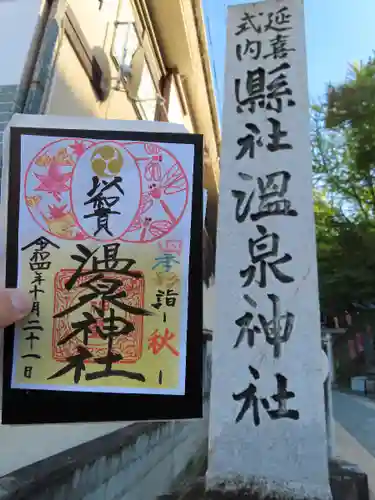 延喜
式内
縣社温泉神社
四季彩詣
ー秋ー
温泉神社
令和四年十月二十一日